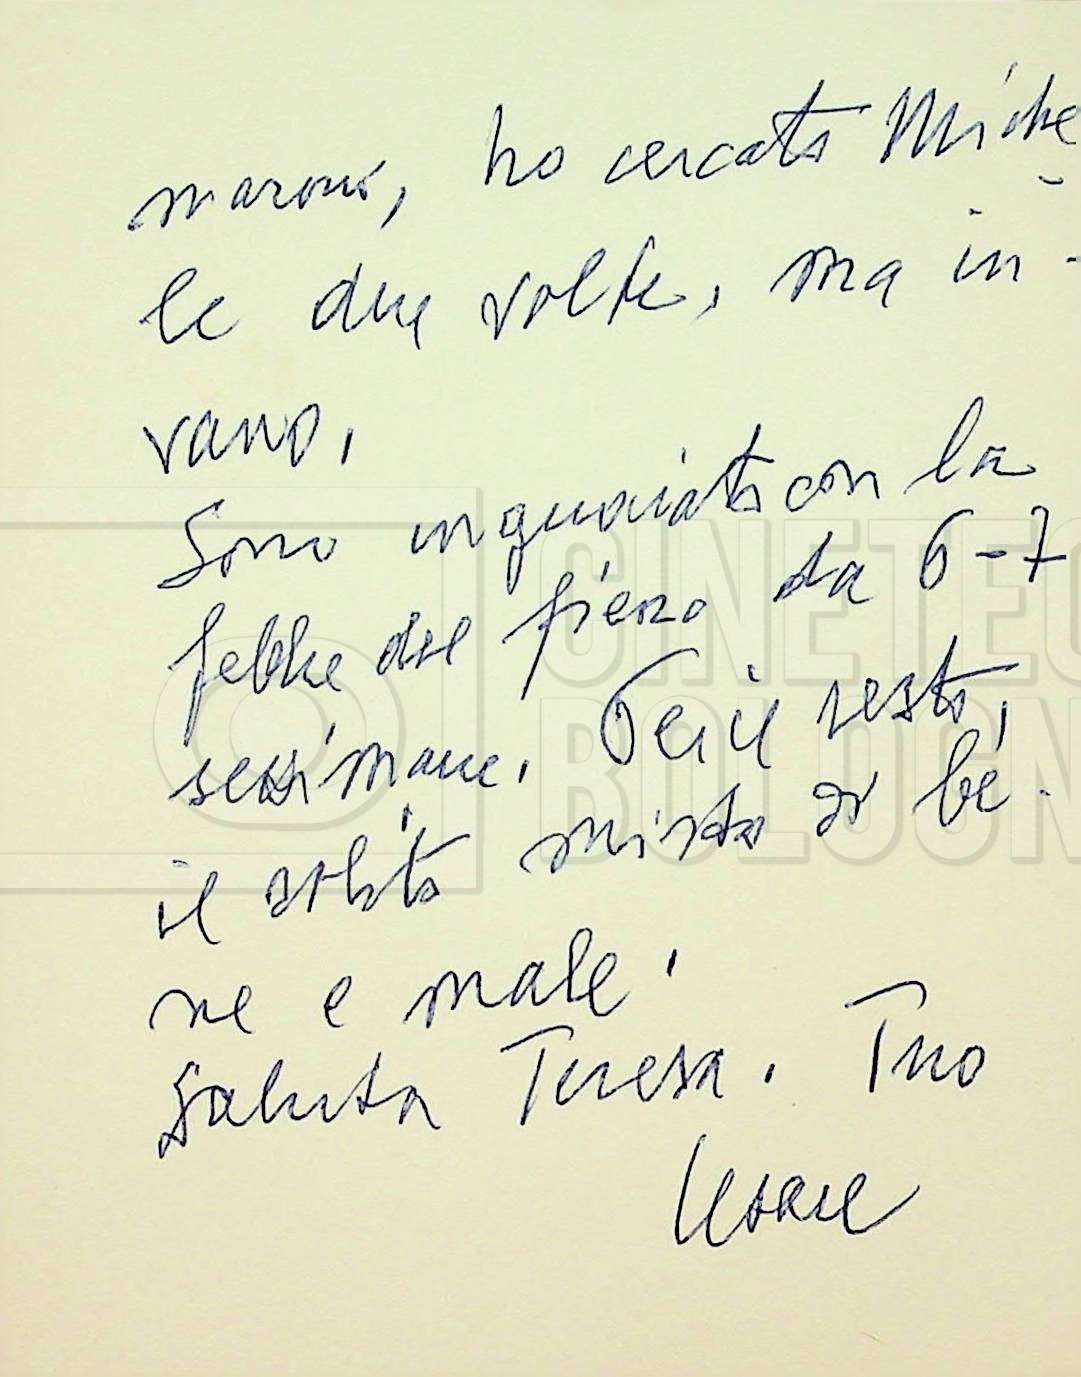 marono, ho cercato Miche-
le due volte, ma in-
vano.
Sono inguaiato con la
febbre del fieno da 6-7
settimane. Per il resto,
il solito misto di be-
ne e male.
Saluta Teresa. Tuo
Cesare
CINETEC
BOLOGN